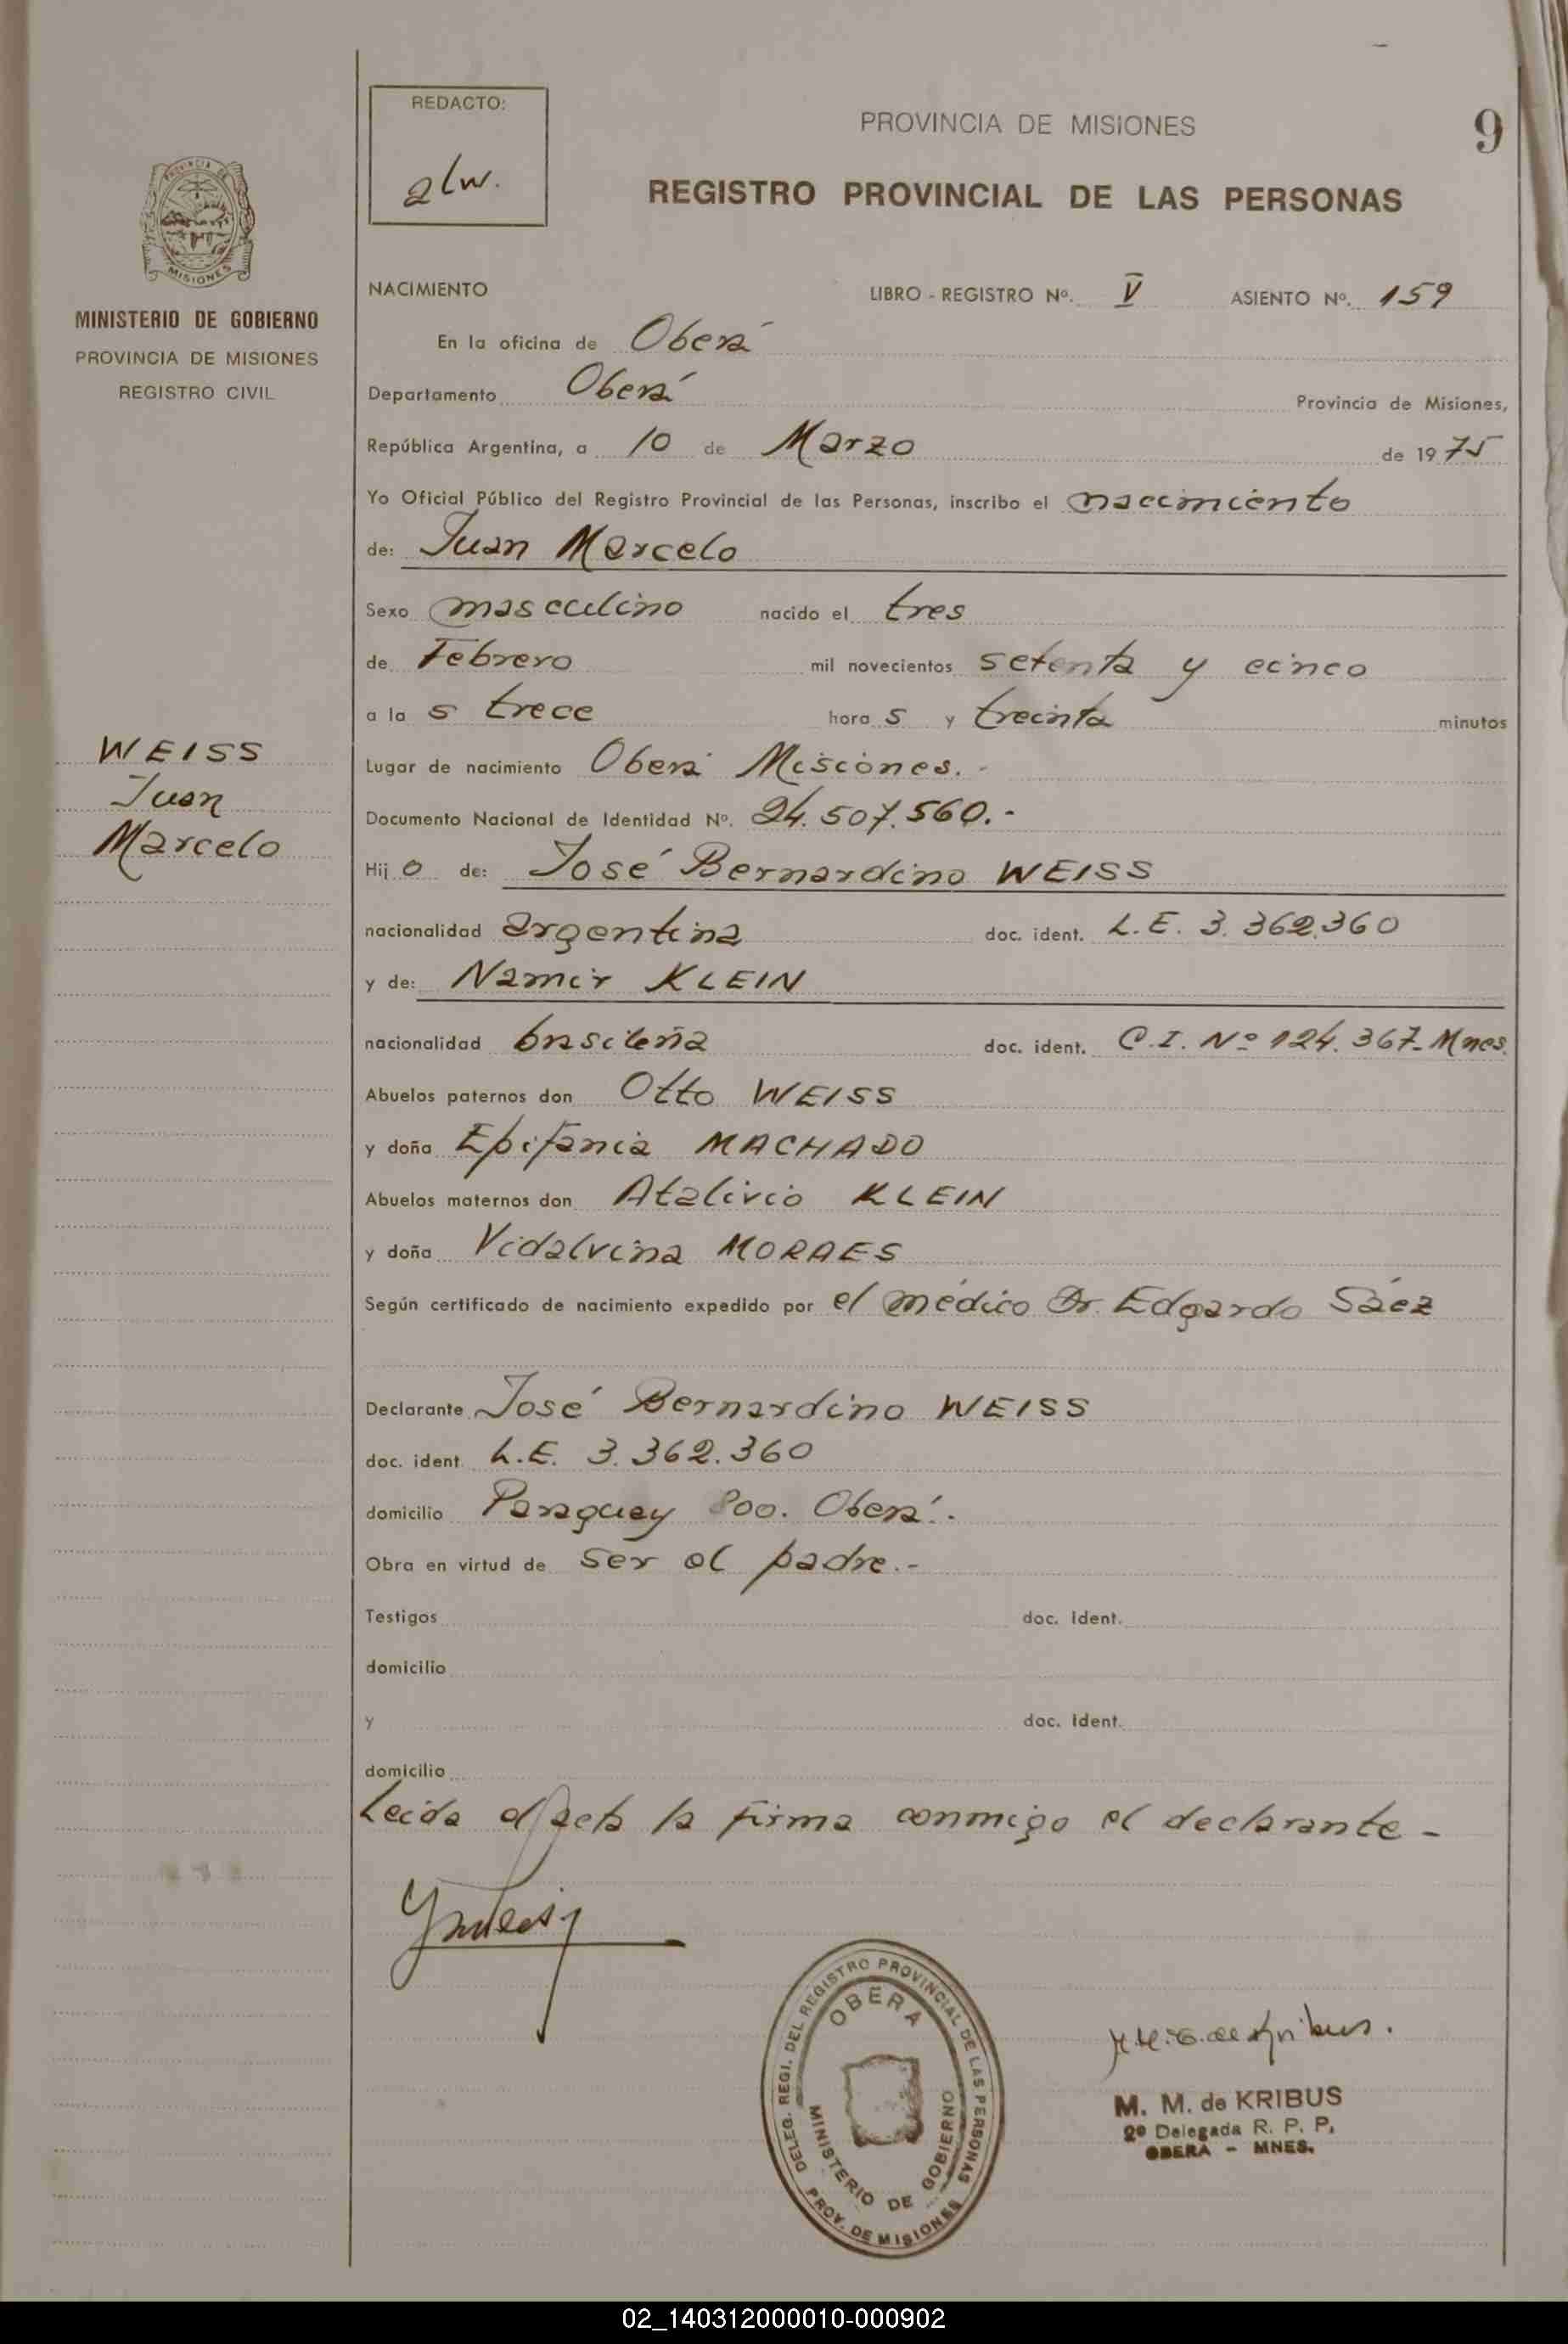 REDACTO:
alw.
PROVINCIA DE MISIONES
9
REGISTRO PROVINCIAL DE LAS PERSONAS
PROVINCIA DE
MISIONES
MINISTERIO DE GOBIERNO
PROVINCIA DE MISIONES
REGISTRO CIVIL
NACIMIENTO LIBRO - REGISTRO Nº. V ASIENTO Nº. 159
En la oficina de Oberá
Departamento Oberá Provincia de Misiones,
República Argentina, a 10 de Marzo de 1975
Yo Oficial Público del Registro Provincial de las Personas, inscribo el nacimiento
de: Juan Marcelo
Sexo masculino nacido el tres
de Febrero mil novecientos setenta y cinco
a la s trece hora s y treinta minutos
WEISS
Juan
Marcelo
Lugar de nacimiento Oberá Misiones.-
Documento Nacional de Identidad Nº. 24.507.560.-
Hij o de: José Bernardino WEISS
nacionalidad argentina doc. ident. L.E. 3.362.360
y de: Namir KLEIN
nacionalidad brasileña doc. ident. C.I. Nº 124.367-Mnes.
Abuelos paternos don Otto WEISS
y doña Epifania MACHADO
Abuelos maternos don Atalivio KLEIN
y doña Vidalvina MORAES
Según certificado de nacimiento expedido por el médico Dr. Edgardo Sáez
Declarante José Bernardino WEISS
doc. ident. L.E. 3.362.360
domicilio Paraguay 800. Oberá.-
Obra en virtud de ser el padre.-
Testigos doc. ident.
domicilio
y doc. ident.
domicilio
Leida el acta la firma conmigo el declarante-
DELEG. REGI. DEL REGISTRO PROVINCIAL DE LAS PERSONAS
OBERA
MINISTERIO DE GOBIERNO
PROV. DE MISIONES
M. M. de KRIBUS
2º Delegada R. P. P.
OBERA - MNES.
02_140312000010-000902